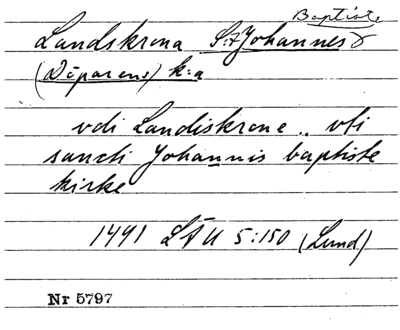 Baptiste
Landskrona S:t Johannes
(Döparens) k:a
vdi Landiskrone .. vti
sancti Johannis baptiste
kirke
1491 LÄU 5:150 (Lund)
Nr 5797